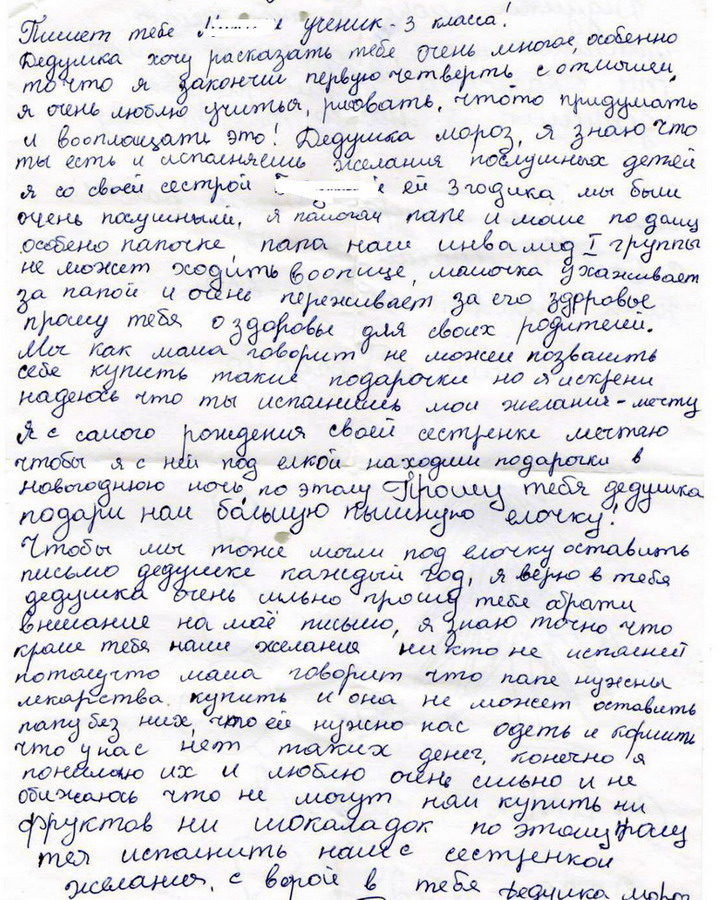 Пишет тебе М е ученик - 3 класса!
Дедушка хочу расказать тебе очень многое, особенно
то что я закончил первую четверть с отличием,
я очень люблю учиться, рисовать, чтото придумать
и вооплощать это! Дедушка мороз, я знаю что
ты есть и исполняешь желания послушных детей
я со своей сестрой е ей 3 годика мы были
очень паслушными, я помогаю папе и маме по дому
особено папочке, папа наш инвалид I группы
не может ходить воопще, мамочка ухаживает
за папой и очень переживает за его здоровье
прошу тебя о здоровье для своих родителей.
Мы как мама говорит не можем позвалить
себе купить такие подарочки но я искрени
надеюсь что ты исполнишь мои желания - мечту
Я с самого рождения своей сестренки мечтаю
чтобы я с ней под елкой находили подарочки в
новогоднюю ночь, по этому Прошу тебя дедушка
подари нам большую пышную елочку!
Чтобы мы тоже могли под елочку оставить
письмо дедушке каждый год, я верю в тебя
дедушка очень сильно прошу тебе обрати
внимание на моё письмо, я знаю точно что
кроме тебя наши желания ни кто не исполнит
потомучто мама говорит что папе нужны
лекарства купить и она не может оставить
папу без них, что ей нужно нас одеть и кормить
что у нас нет таких денег, конечно я
понимаю их и люблю очень сильно и не
обижаюсь что не могут нам купить ни
фруктов ни шокаладок по этому прошу
тея исполнить наши с сестренкой
желания, с верой в тебя дедушка мороз